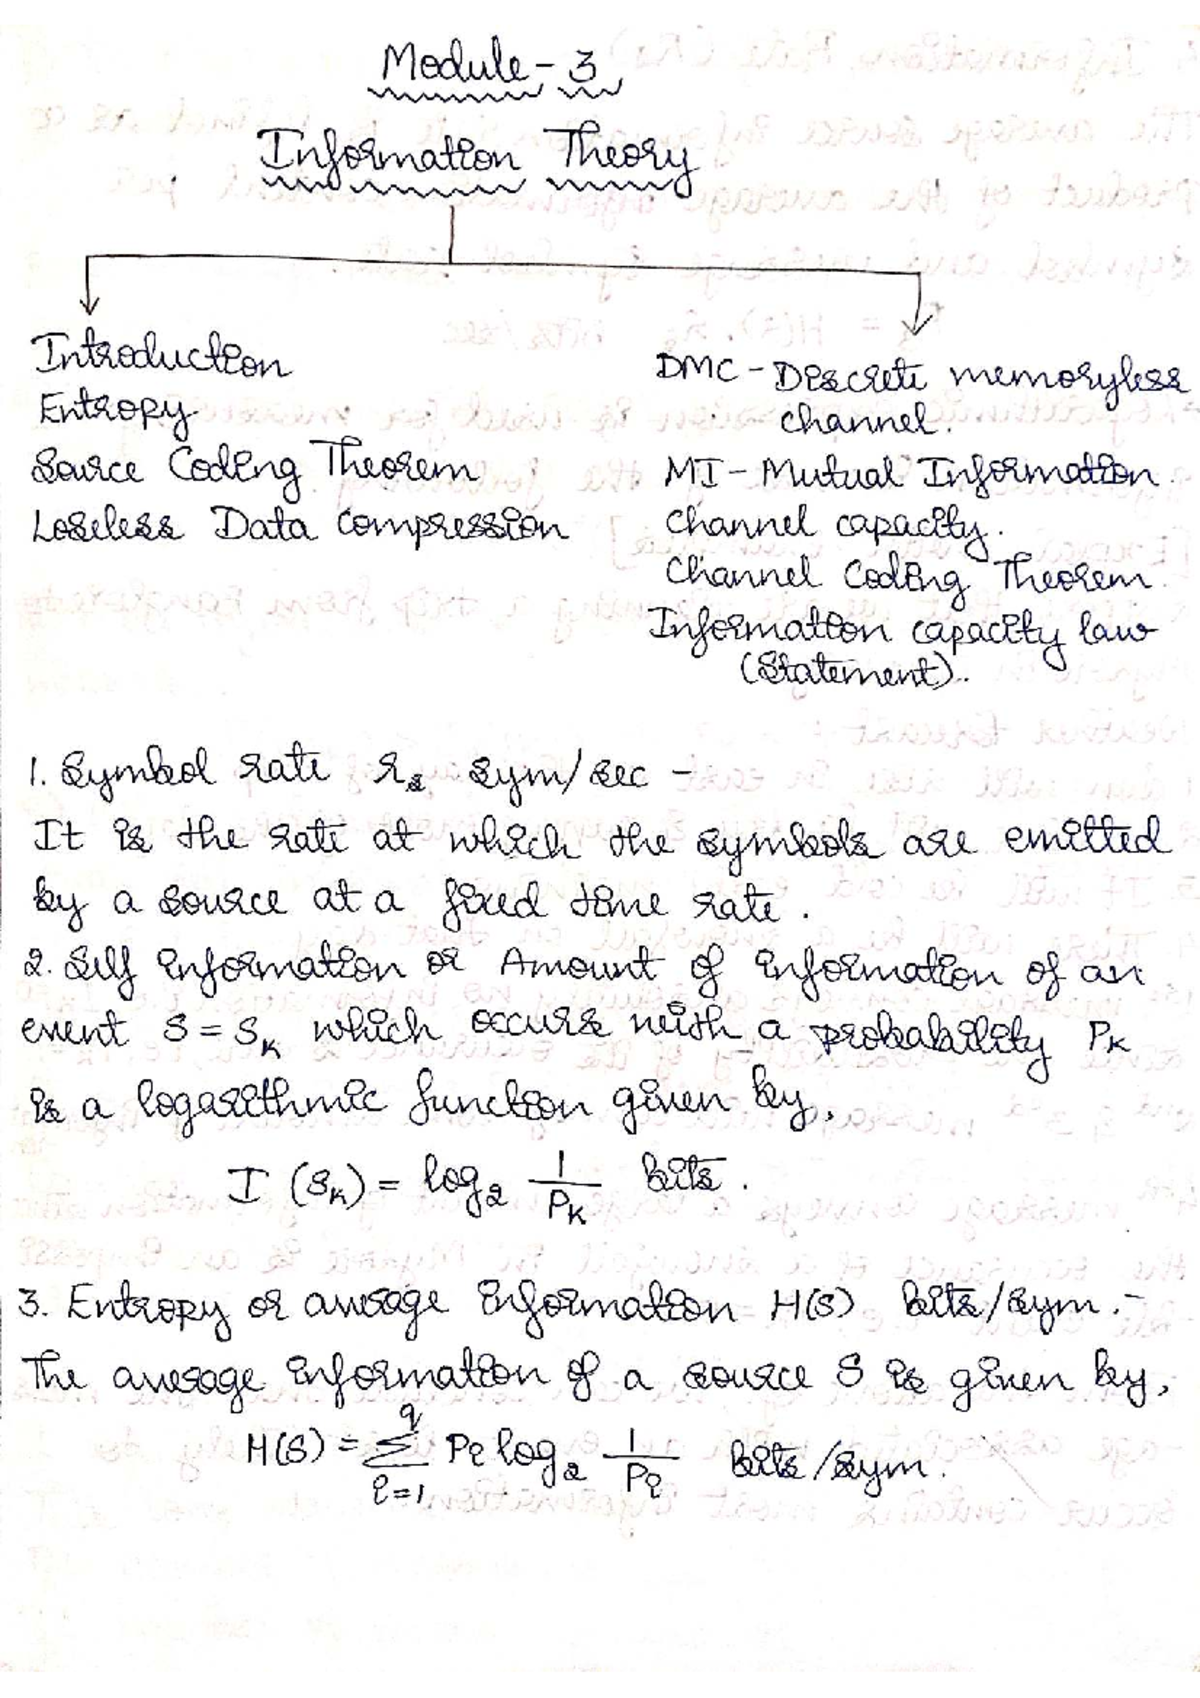 Module - 3
Information Theory
Introduction
Entropy
Source Coding Theorem
Lossless Data Compression
DMC - Discrete memoryless
channel.
MI - Mutual Information
Channel capacity.
Channel Coding Theorem
Information capacity law
(Statement).
1. Symbol rate rs sym/sec -
It is the rate at which the symbols are emitted
by a source at a fixed time rate.
2. Self information or Amount of information of an
event S = SK which occurs with a probability PK
is a logarithmic function given by,
I (SK) = log2 1/PK bits.
3. Entropy or average information H(S) bits/sym. -
The average information of a source S is given by,
H(S) = Σ i=1 q Pi log2 1/Pi bits/sym.